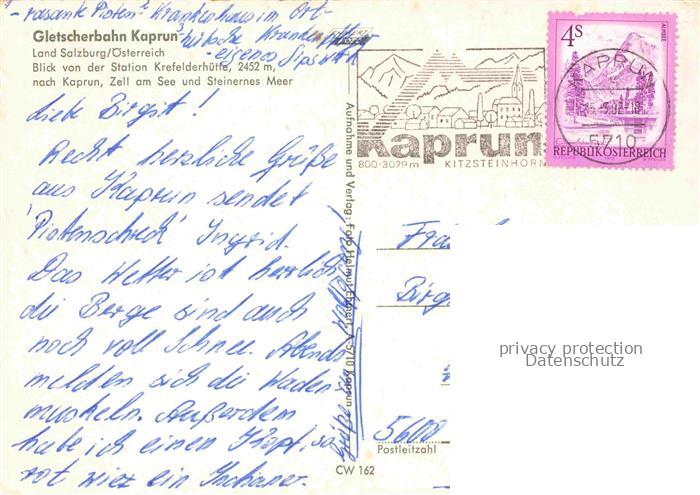 - rasante Pisten - Krankenhaus im Ort -
hübsche Krankenpfleger
- eigenes Gips
Gletscherbahn Kaprun
Land Salzburg/Österreich
Blick von der Station Krefelderhütte, 2452 m,
nach Kaprun, Zell am See und Steinernes Meer
Liebe Birgit!
Recht herzliche Grüße
aus Kaprun sendet
'Pistenschreck' Ingrid.
Das Wetter ist herrlich,
die Berge sind auch
noch voll Schnee. Abends
melden sich die Waden-
muskeln. Außerdem
habe ich einen Kopf, so
rot wie ein
Aufnahme und Verlag: Foto Helmut 5710 Kaprun
CW 162
Kaprun
800-3029m KITZSTEINHORN
4S
ALMSEE
REPUBLIK ÖSTERREICH
KAPRUN
5710
Birg
5608
Postleitzahl
privacy protection
Datenschutz